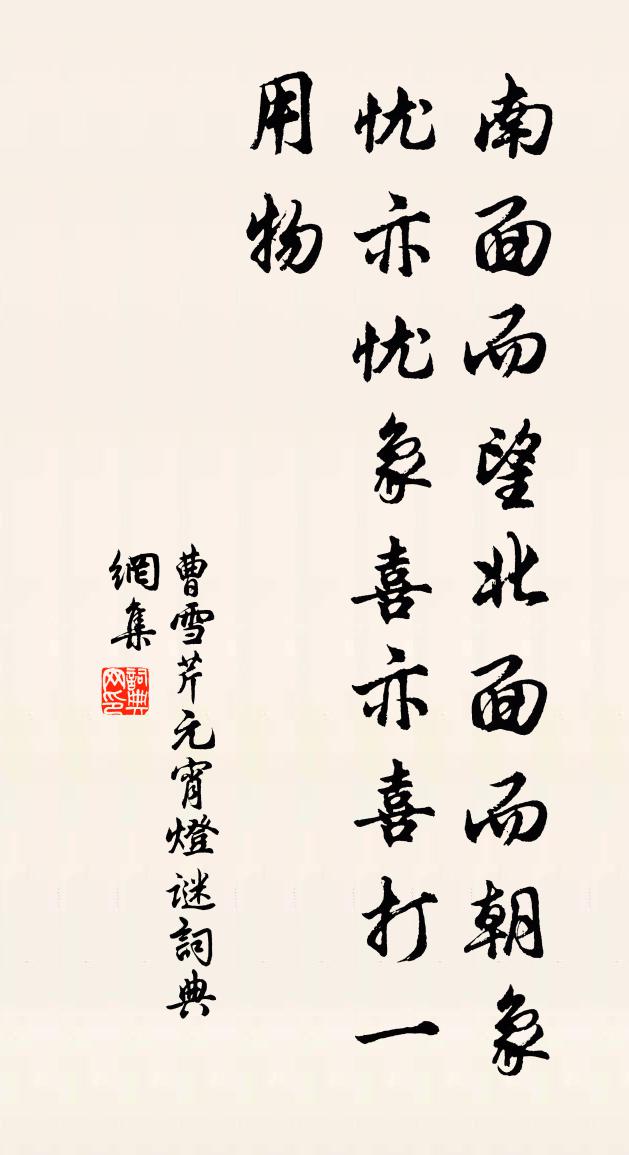 南面而望北面而朝象
忧亦忧象喜亦喜打一
用物
曹雪芹元宵燈谜詞典
網集
詞典
网印